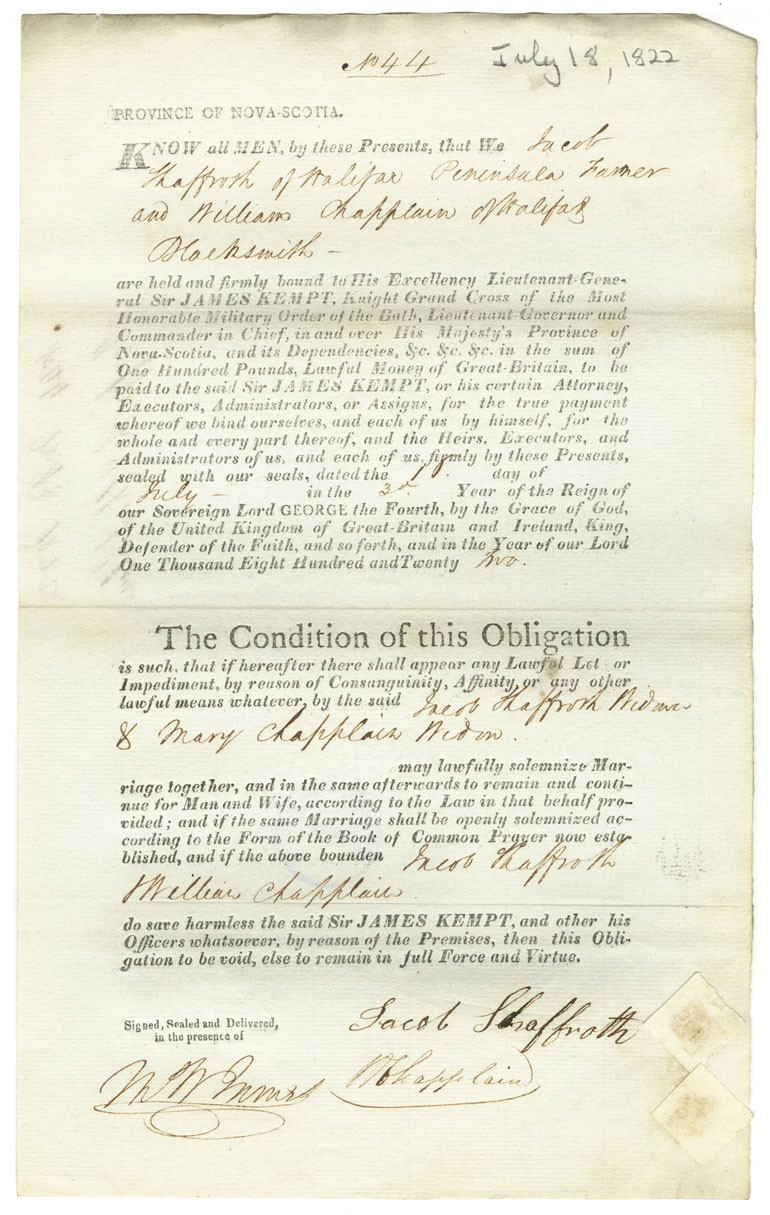 No 44
July 18, 1822
PROVINCE OF NOVA-SCOTIA.
KNOW all MEN, by these Presents, that We Jacob
Shaffroth of Halifax Peninsula Farmer
and William Chapplain of Halifax
Blacksmith —
are held and firmly bound to His Excellency Lieutenant-Gene-
ral Sir JAMES KEMPT, Knight Grand Cross of the Most
Honorable Military Order of the Bath, Lieutenant-Governor and
Commander in Chief, in and over His Majesty's Province of
Nova-Scotia, and its Dependencies, &c. &c. &c. in the sum of
One Hundred Pounds, Lawful Money of Great-Britain, to be
paid to the said Sir JAMES KEMPT, or his certain Attorney,
Executors, Administrators, or Assigns, for the true payment
whereof we bind ourselves, and each of us by himself, for the
whole and every part thereof, and the Heirs, Executors, and
Administrators of us, and each of us, firmly by these Presents,
sealed with our seals, dated the day of
July — in the 3d. Year of the Reign of
our Sovereign Lord GEORGE the Fourth, by the Grace of God,
of the United Kingdom of Great-Britain and Ireland, King,
Defender of the Faith, and so forth, and in the Year of our Lord
One Thousand Eight Hundred and Twenty two.
The Condition of this Obligation
is such, that if hereafter there shall appear any Lawful Let or
Impediment, by reason of Consanguinity, Affinity, or any other
lawful means whatever, by the said Jacob Shaffroth Widower
& Mary Chapplain Widow.
may lawfully solemnize Mar-
riage together, and in the same afterwards to remain and conti-
nue for Man and Wife, according to the Law in that behalf pro-
vided; and if the same Marriage shall be openly solemnized ac-
cording to the Form of the Book of Common Prayer now esta-
blished, and if the above bounden Jacob Shaffroth
William Chapplain
do save harmless the said Sir JAMES KEMPT, and other his
Officers whatsoever, by reason of the Premises, then this Obli-
gation to be void, else to remain in full Force and Virtue.
Signed, Sealed and Delivered,
in the presence of
Jacob Shaffroth
W Chapplain